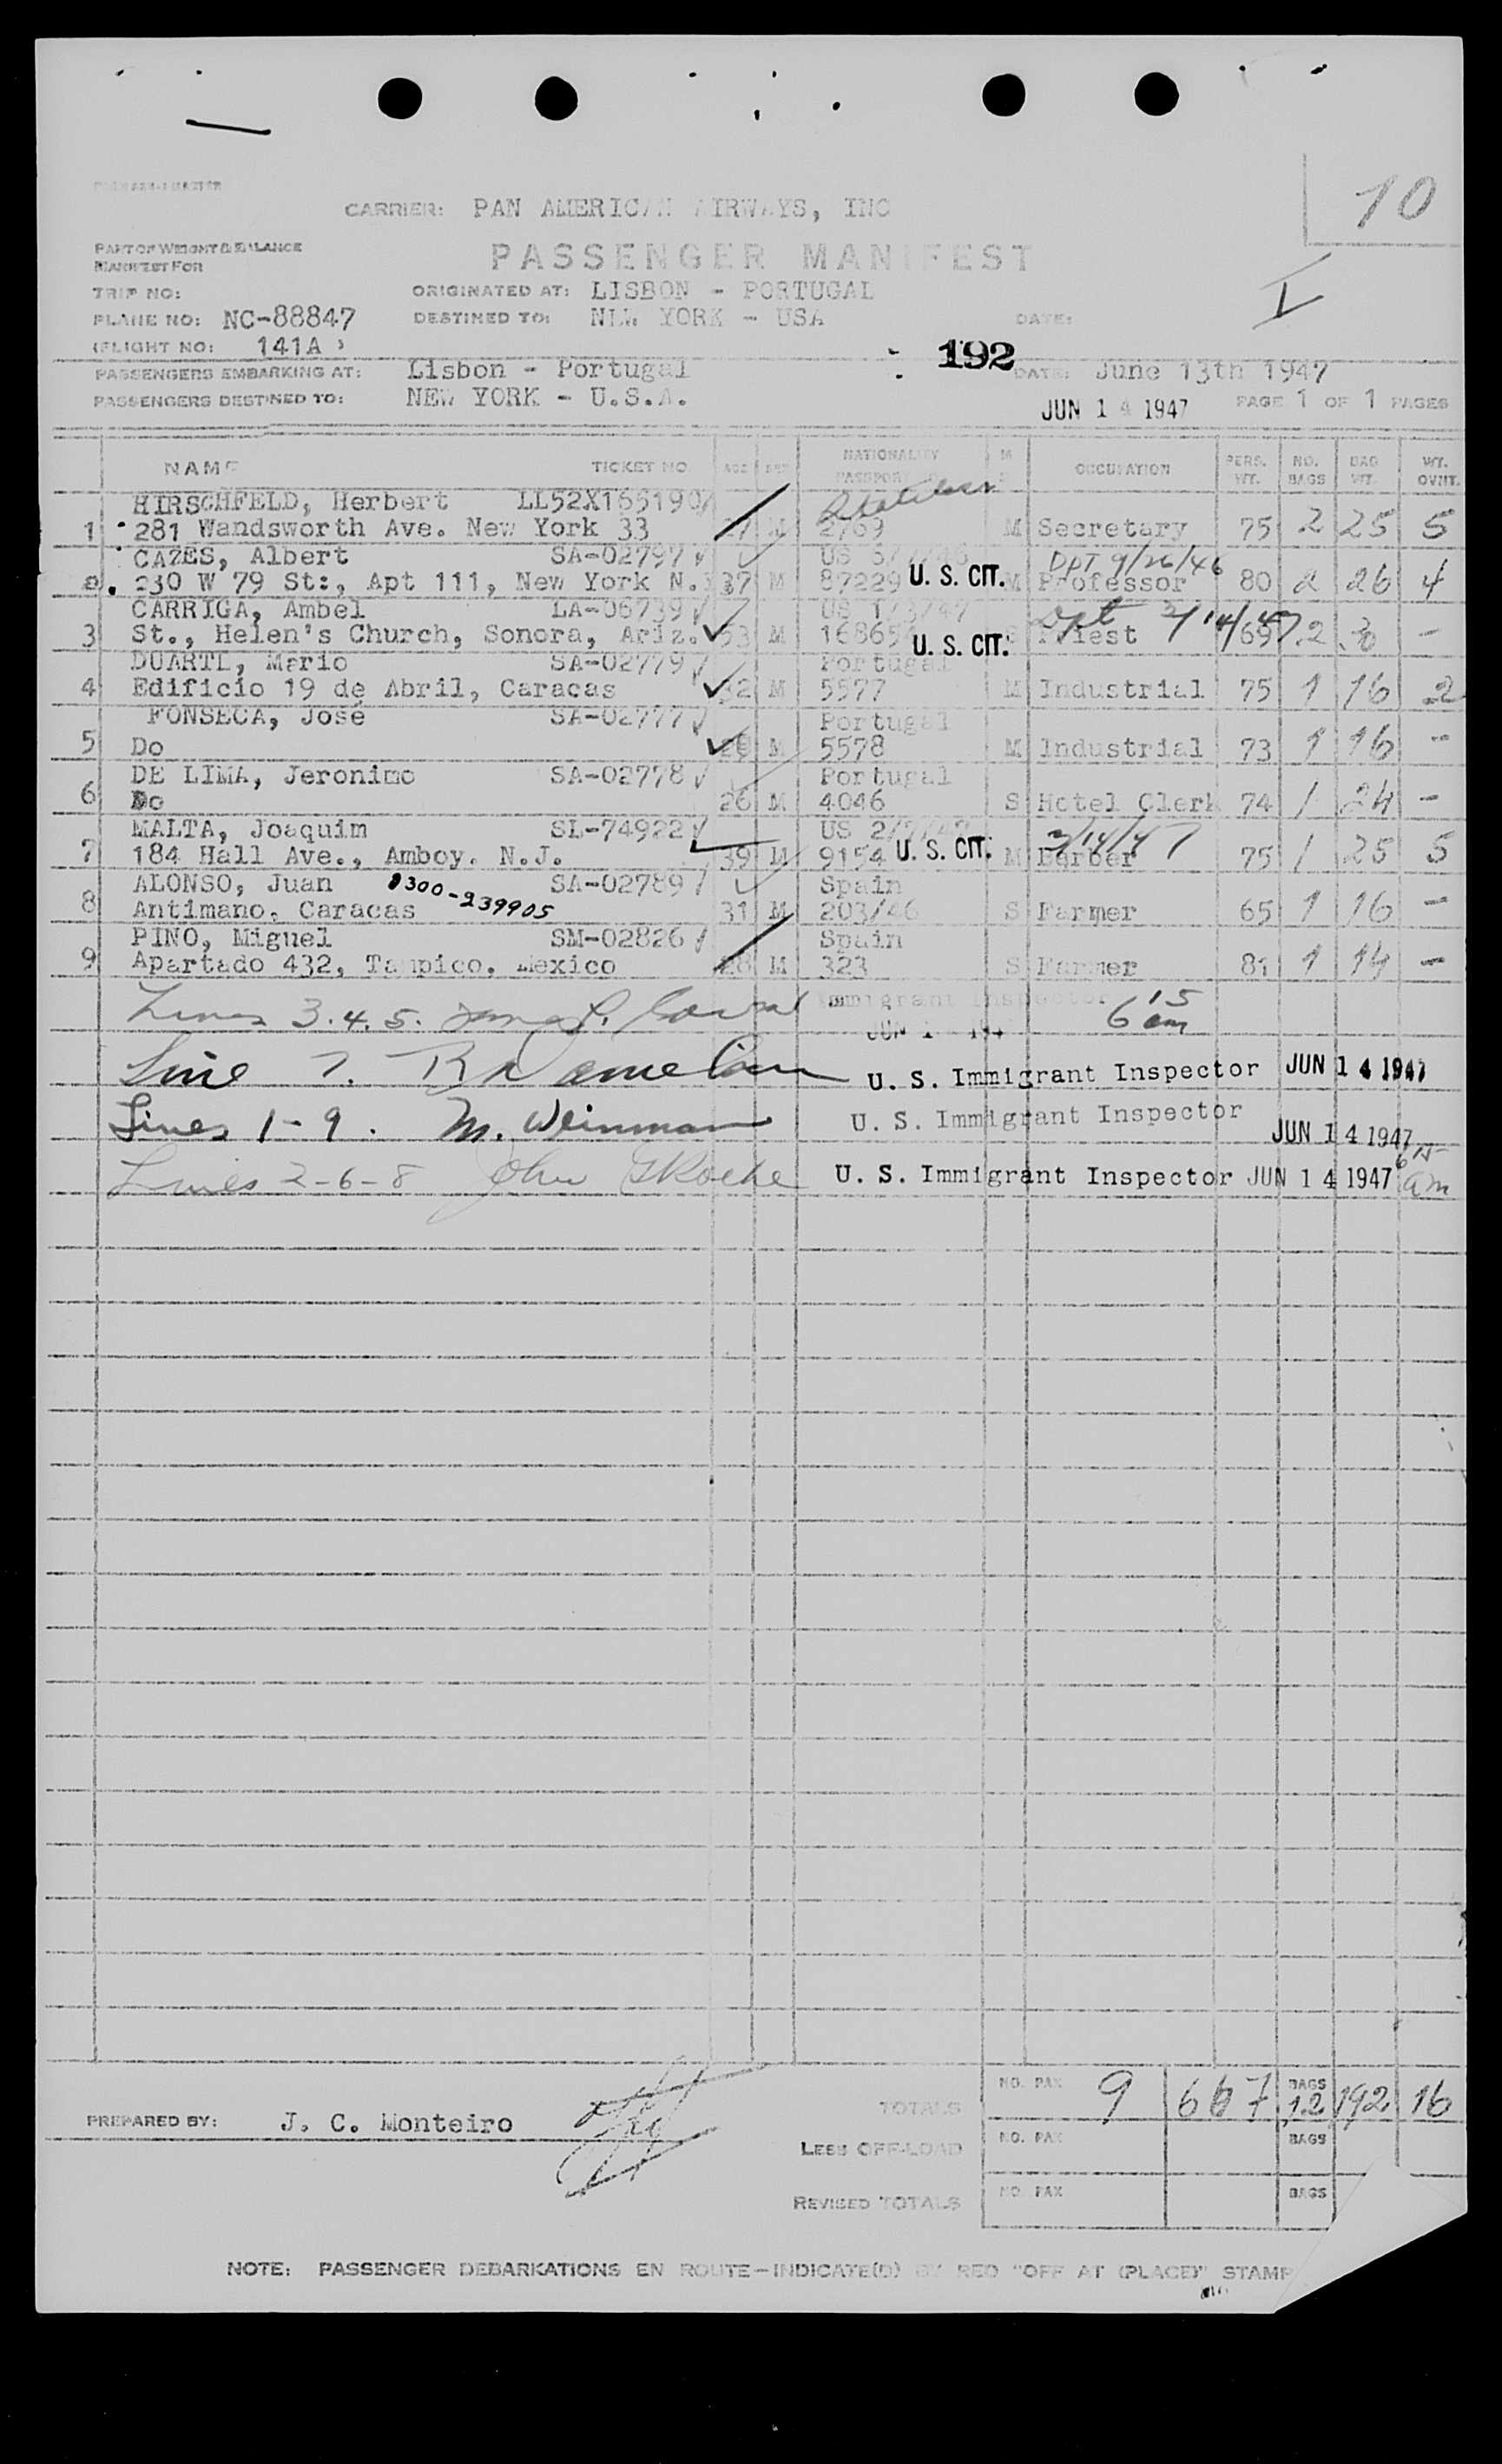 10
CARRIER: PAN AMERICAN AIRWAYS, INC
PART OF WEIGHT & BALANCE
MANIFEST FOR
PASSENGER MANIFEST
I
TRIP NO:
ORIGINATED AT: LISBON - PORTUGAL
PLANE NO: NC-88847
DESTINED TO: NEW YORK - USA
DATE:
(FLIGHT NO: 141A )
192
PASSENGERS EMBARKING AT: Lisbon - Portugal DATE: June 13th 1947
PASSENGERS DESTINED TO: NEW YORK - U.S.A. JUN 14 1947 PAGE 1 OF 1 PAGES
NAME TICKET NO AGE SEX NATIONALITY PASSPORT M S OCCUPATION PERS. WT. NO. BAGS BAG WT. WT. OVNT.
HIRSCHFELD, Herbert LL52X165190 Stateless
1 281 Wandsworth Ave. New York 33 M 2769 M Secretary 75 2 25 5
CAZES, Albert SA-02797 US DPT 9/26/46
2. 230 W 79 St:, Apt 111, New York N. 37 M 87229 U. S. CIT. M Professor 80 2 26 4
CARRIGA, Ambel LA-06739 US 1/3/47 Dpt
3 St., Helen's Church, Sonora, Ariz. 53 M U. S. CIT. Priest 69 2 30 -
DUARTE, Mario SA-02779 Portugal
4 Edificio 19 de Abril, Caracas 32 M 5577 M Industrial 75 1 16 2
FONSECA, José SA-02777 Portugal
5 Do M 5578 M Industrial 73 1 16 -
DE LIMA, Jeronimo SA-02778 Portugal
6 Do 26 M 4046 S Hotel Clerk 74 1 24 -
MALTA, Joaquim SL-74922 US 3/14/47
7 184 Hall Ave., Amboy. N.J. 39 M 9154 U. S. CIT. M Barber 75 1 25 5
ALONSO, Juan 0300-239905 SA-02789 Spain
8 Antimano, Caracas 31 M 203/46 S Farmer 65 1 16 -
PINO, Miguel SM-02826 Spain
9 Apartado 432, Tampico. Mexico 28 M 323 S Farmer 81 1 14 -
Lines 3.4.5. Immigrant Inspector 6 15 am
Line 7. U. S. Immigrant Inspector JUN 14 1947
Lines 1-9. M. Weinman U. S. Immigrant Inspector JUN 14 1947
Lines 2-6-8 John Roche U. S. Immigrant Inspector JUN 14 1947 6 15 am
PREPARED BY: J. C. Monteiro
TOTALS NO. PAX 9 667 BAGS 12 192 16
LESS OFF-LOAD NO. PAX BAGS
REVISED TOTALS NO. PAX BAGS
NOTE: PASSENGER DEBARKATIONS EN ROUTE-INDICATE(D) BY RED "OFF AT (PLACE)" STAMP